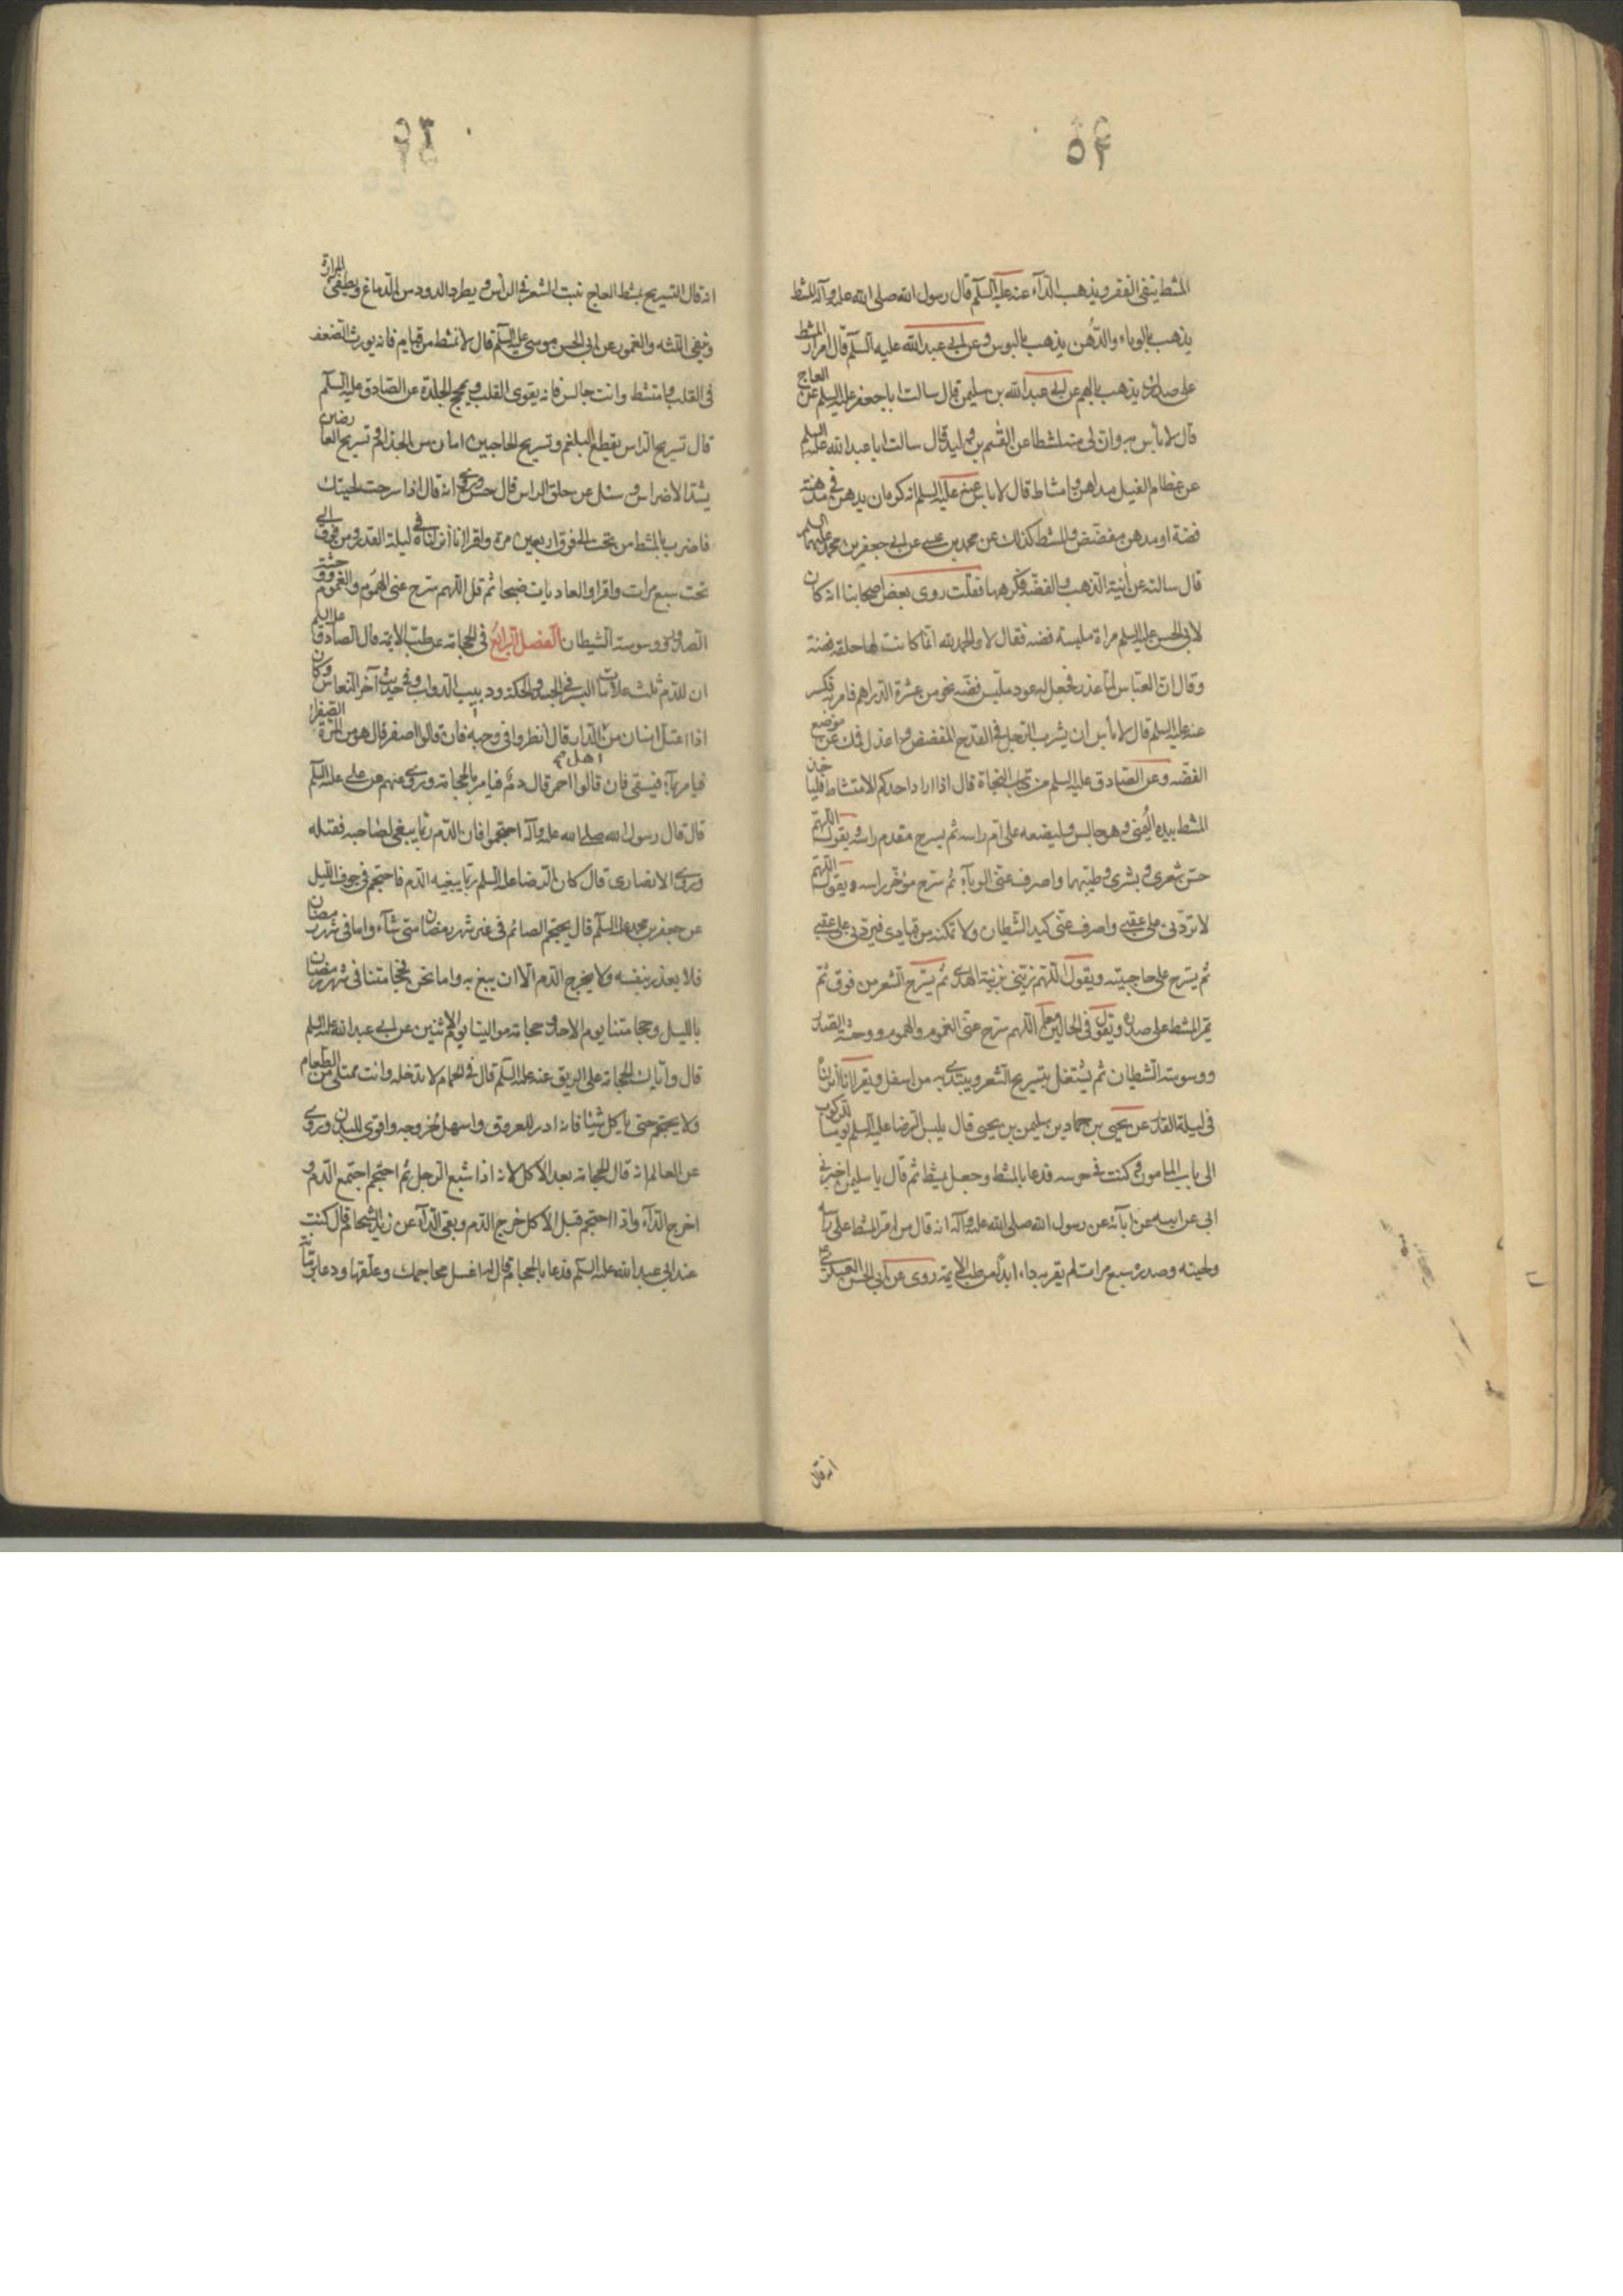 ٥٢
المشط ينفى الفقر ويذهب الداء عنه عليه السلم قال رسول الله صلى الله عليه وآله المشط
يذهب بالوباء والدهن يذهب بالبوس وعن ابى عبد الله عليه السلم قال امرار المشط
على صدرك يذهب بالهم عن ابى عبد الله بن سليمن قال سالت ابا جعفر عليه السلم عن العاج
قال لا باس به وان لى منه لمشطا عن القسم بن وليد قال سالت ابا عبد الله عليه السلم
عن عظام الفيل مداهن وامشاط قال لا باس عنه عليه السلم انه كره ان يدهن فى مدهنة
فضة او مدهن مفضض والمشط كذلك عن محمد بن عيسى عن ابى جعفر بن محمد عليهما السلم
قال سالته عن آنية الذهب والفضة فكرهها فقلت روى بعض اصحابنا انه كان
لابى الحسن عليه السلم مراة ملبسة فضة فقال لا والحمد لله انما كانت لها حلقة فضة
وقال ان العباس لما عذر فجعل له عود ملبس فضة نحو من عشرة الدراهم فامر به فكسر
عنه عليه السلم قال لا باس ان يشرب الرجل فى القدح المفضض واعدل فمك عن موضع
الفضة وعن الصادق عليه السلم من كتاب النجاة قال اذا اراد احدكم الامتشاط فليأخذ
المشط بيده اليمنى وهو جالس وليضعه على ام راسه ثم يسرح مقدم راسه ويقول اللهم
حسن شعرى وبشرى وطيبهما واصرف عنى الوباء ثم يسرح مؤخر راسه ويقول اللهم
لا تردنى على عقبى واصرف عنى كيد الشيطان ولا تمكنه من قيادى فيردنى على عقبى
ثم يسرح على حاجبيه ويقول اللهم زينى بزينة الهدى ثم يسرح الشعر من فوق ثم
يمر المشط على صدره ويقول فى الحالين معا اللهم سرح عنى الغموم والهموم ووحشة الصدر
ووسوسة الشيطان ثم يشتغل بتسريح الشعر ويبتدى به من اسفل ويقرا انا انزلناه
فى ليلة القدر عن يحيى بن حماد بن سليمن بن يحيى قال يلبس الرضا عليه السلم يوما للركوب
الى باب المامون وكنت فى حرسه فدعا بالمشط وجعل يمشط ثم قال يا سليمن اخبرنى
ابى عن ابيه عن آبائه عن رسول الله صلى الله عليه وآله انه قال من امر المشط على راسه
ولحيته وصدره سبع مرات لم يقربه داء ابدا من طب الائمة روى عن ابى الحسن العسكرى ع
انه قال
انه قال التسريح بمشط العاج تنبت الشعر فى الراس ويطرد الدود من الدماغ ويطفى المرارة
وينقى اللثه والعمور عن ابى الحسن موسى عليه السلم قال لا تمتشط من قيام فانه يورث الضعف
فى القلب وامتشط وانت جالس فانه يقوى القلب ويمخج الجلدة عن الصادق عليه السلم
قال تسريح الراس يقطع البلغم وتسريح الحاجبين امان من الجذام وتسريح العارضين
يشد الاضراس وسئل عن حلق الراس قال حسن وروى انه قال اذا سرحت لحيتك
فاضرب بالمشط من تحت الى فوق اربعين مرة واقرا انا انزلناه فى ليلة القدر ومن فوق الى
تحت سبع مرات واقرا والعاديات ضبحا ثم قل اللهم سرح عنى الهموم والغموم ووحشة
الصدر ووسوسة الشيطان الفصل الرابع فى الحجامة عن طب الائمة قال الصادق عليه السلم
ان للدم ثلث علامات البثر فى الجسد والحكة ودبيب الدواب وفى حديث آخر النعاس وكان
اذا اعتل انسان من اهل الدار قال انظروا فى وجهه فان قالوا اصفر قال هو من المرة الصفرا
فيامر بماء فيسقى فان قالوا احمر قال دم فيامر بالحجامة وروى عنهم عن على عليه السلم
قال قال رسول الله صلى الله عليه وآله احتجموا فان الدم ربما يبيغ لصاحبه فقتله
وروى الانصارى قال كان الرضا عليه السلم ربما يبيغه الدم فاحتجم فى جوف الليل
عن جعفر بن محمد عليه السلم قال يحتجم الصائم فى غير شهر رمضان متى شاء واما فى شهر رمضان
فلا يعذر بنفسه ولا يخرج الدم الا ان يبيغ به واما نحن فحجامتنا فى شهر رمضان
بالليل وحجامتنا يوم الاحد وحجامة موالينا يوم الاثنين عن ابى عبد الله عليه السلم
قال واياك الحجامة على الريق عنه عليه السلم قال فى الحمام لا تدخله وانت ممتلى من الطعام
ولا يحتجم حتى ياكل شيئا فانه ادر للعروق واسهل لخروجه واقوى للبدن وروى
عن العالم انه قال الحجامة بعد الاكل لانه اذا شبع الرجل ثم احتجم اجتمع الدم و
اخرج الداء واذا احتجم قبل الاكل خرج الدم وبقى الداء عن زيد الشحام قال كنت
عند ابى عبد الله عليه السلم فدعا بالحجام فقال له اغسل محاجمك وعلقها ودعا برمانة